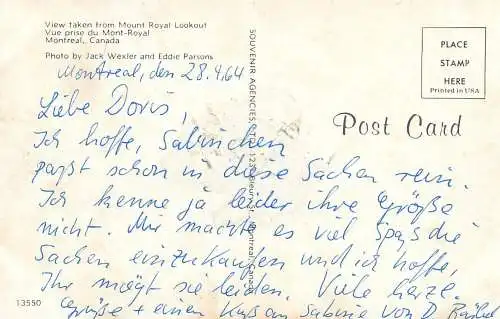 View taken from Mount Royal Lookout
Vue prise du Mont-Royal
Montreal, Canada
Photo by Jack Wexler and Eddie Parsons
PLACE
STAMP
HERE
Printed in USA
Post Card
SOUVENIR AGENCIES LTD.
Montreal, Canada
Montreal, den 28.4.64
Liebe Doris,
Ich hoffe, Sabinchen
paßt schon in diese Sachen rein.
Ich kenne ja leider ihre Größe
nicht. Mir machte es viel Spaß die
Sachen einzukaufen und ich hoffe,
Ihr mögt sie leiden. Viele herzl.
Grüße + einen Kuß an Sabine von D.
13550